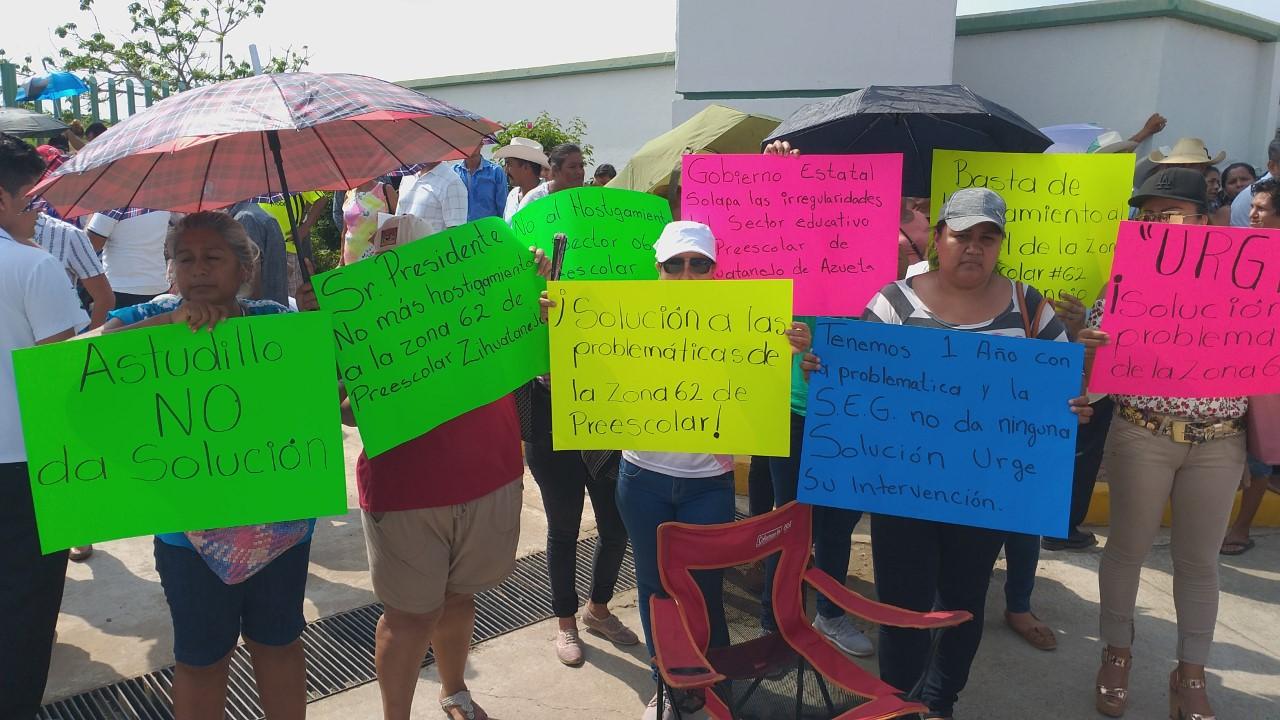 Astudillo
NO
da Solución
Sr. Presidente
No más hostigamiento
a la zona 62 de
Preescolar Zihuatanejo
No al Hostigamiento
Sector 06
Preescolar
¡Solución a las
problemáticas de
la zona 62 de
Preescolar!
Gobierno Estatal
Solapa las irregularidades
del Sector educativo
Preescolar de
Azueta
Tenemos 1 Año con
la problematica y la
S.E.G. no da ninguna
Solución Urge
Su Intervención.
Basta de
al
de la Zona
#62
"URG
¡Solución
problema
de la Zona 6
Coleman